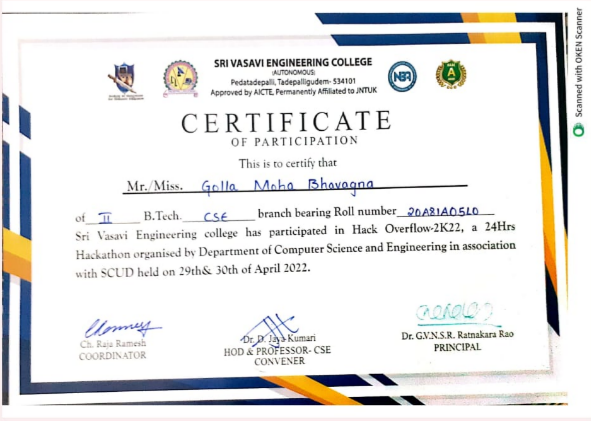 SRI VASAVI ENGINEERING COLLEGE
(AUTONOMOUS)
Pedatadepalli, Tadepalligudem- 534101
Approved by AICTE, Permanently Affiliated to JNTUK
NBA
A
CERTIFICATE
OF PARTICIPATION
This is to certify that
Mr./Miss. Golla Moha Bhavagna
of II B.Tech. CSE branch bearing Roll number 20A81A05L0
Sri Vasavi Engineering college has participated in Hack Overflow-2K22, a 24Hrs
Hackathon organised by Department of Computer Science and Engineering in association
with SCUD held on 29th& 30th of April 2022.
Ch. Raja Ramesh
COORDINATOR
Dr. D. Jaya Kumari
HOD & PROFESSOR- CSE
CONVENER
Dr. G.V.N.S.R. Ratnakara Rao
PRINCIPAL
Scanned with OKEN Scanner